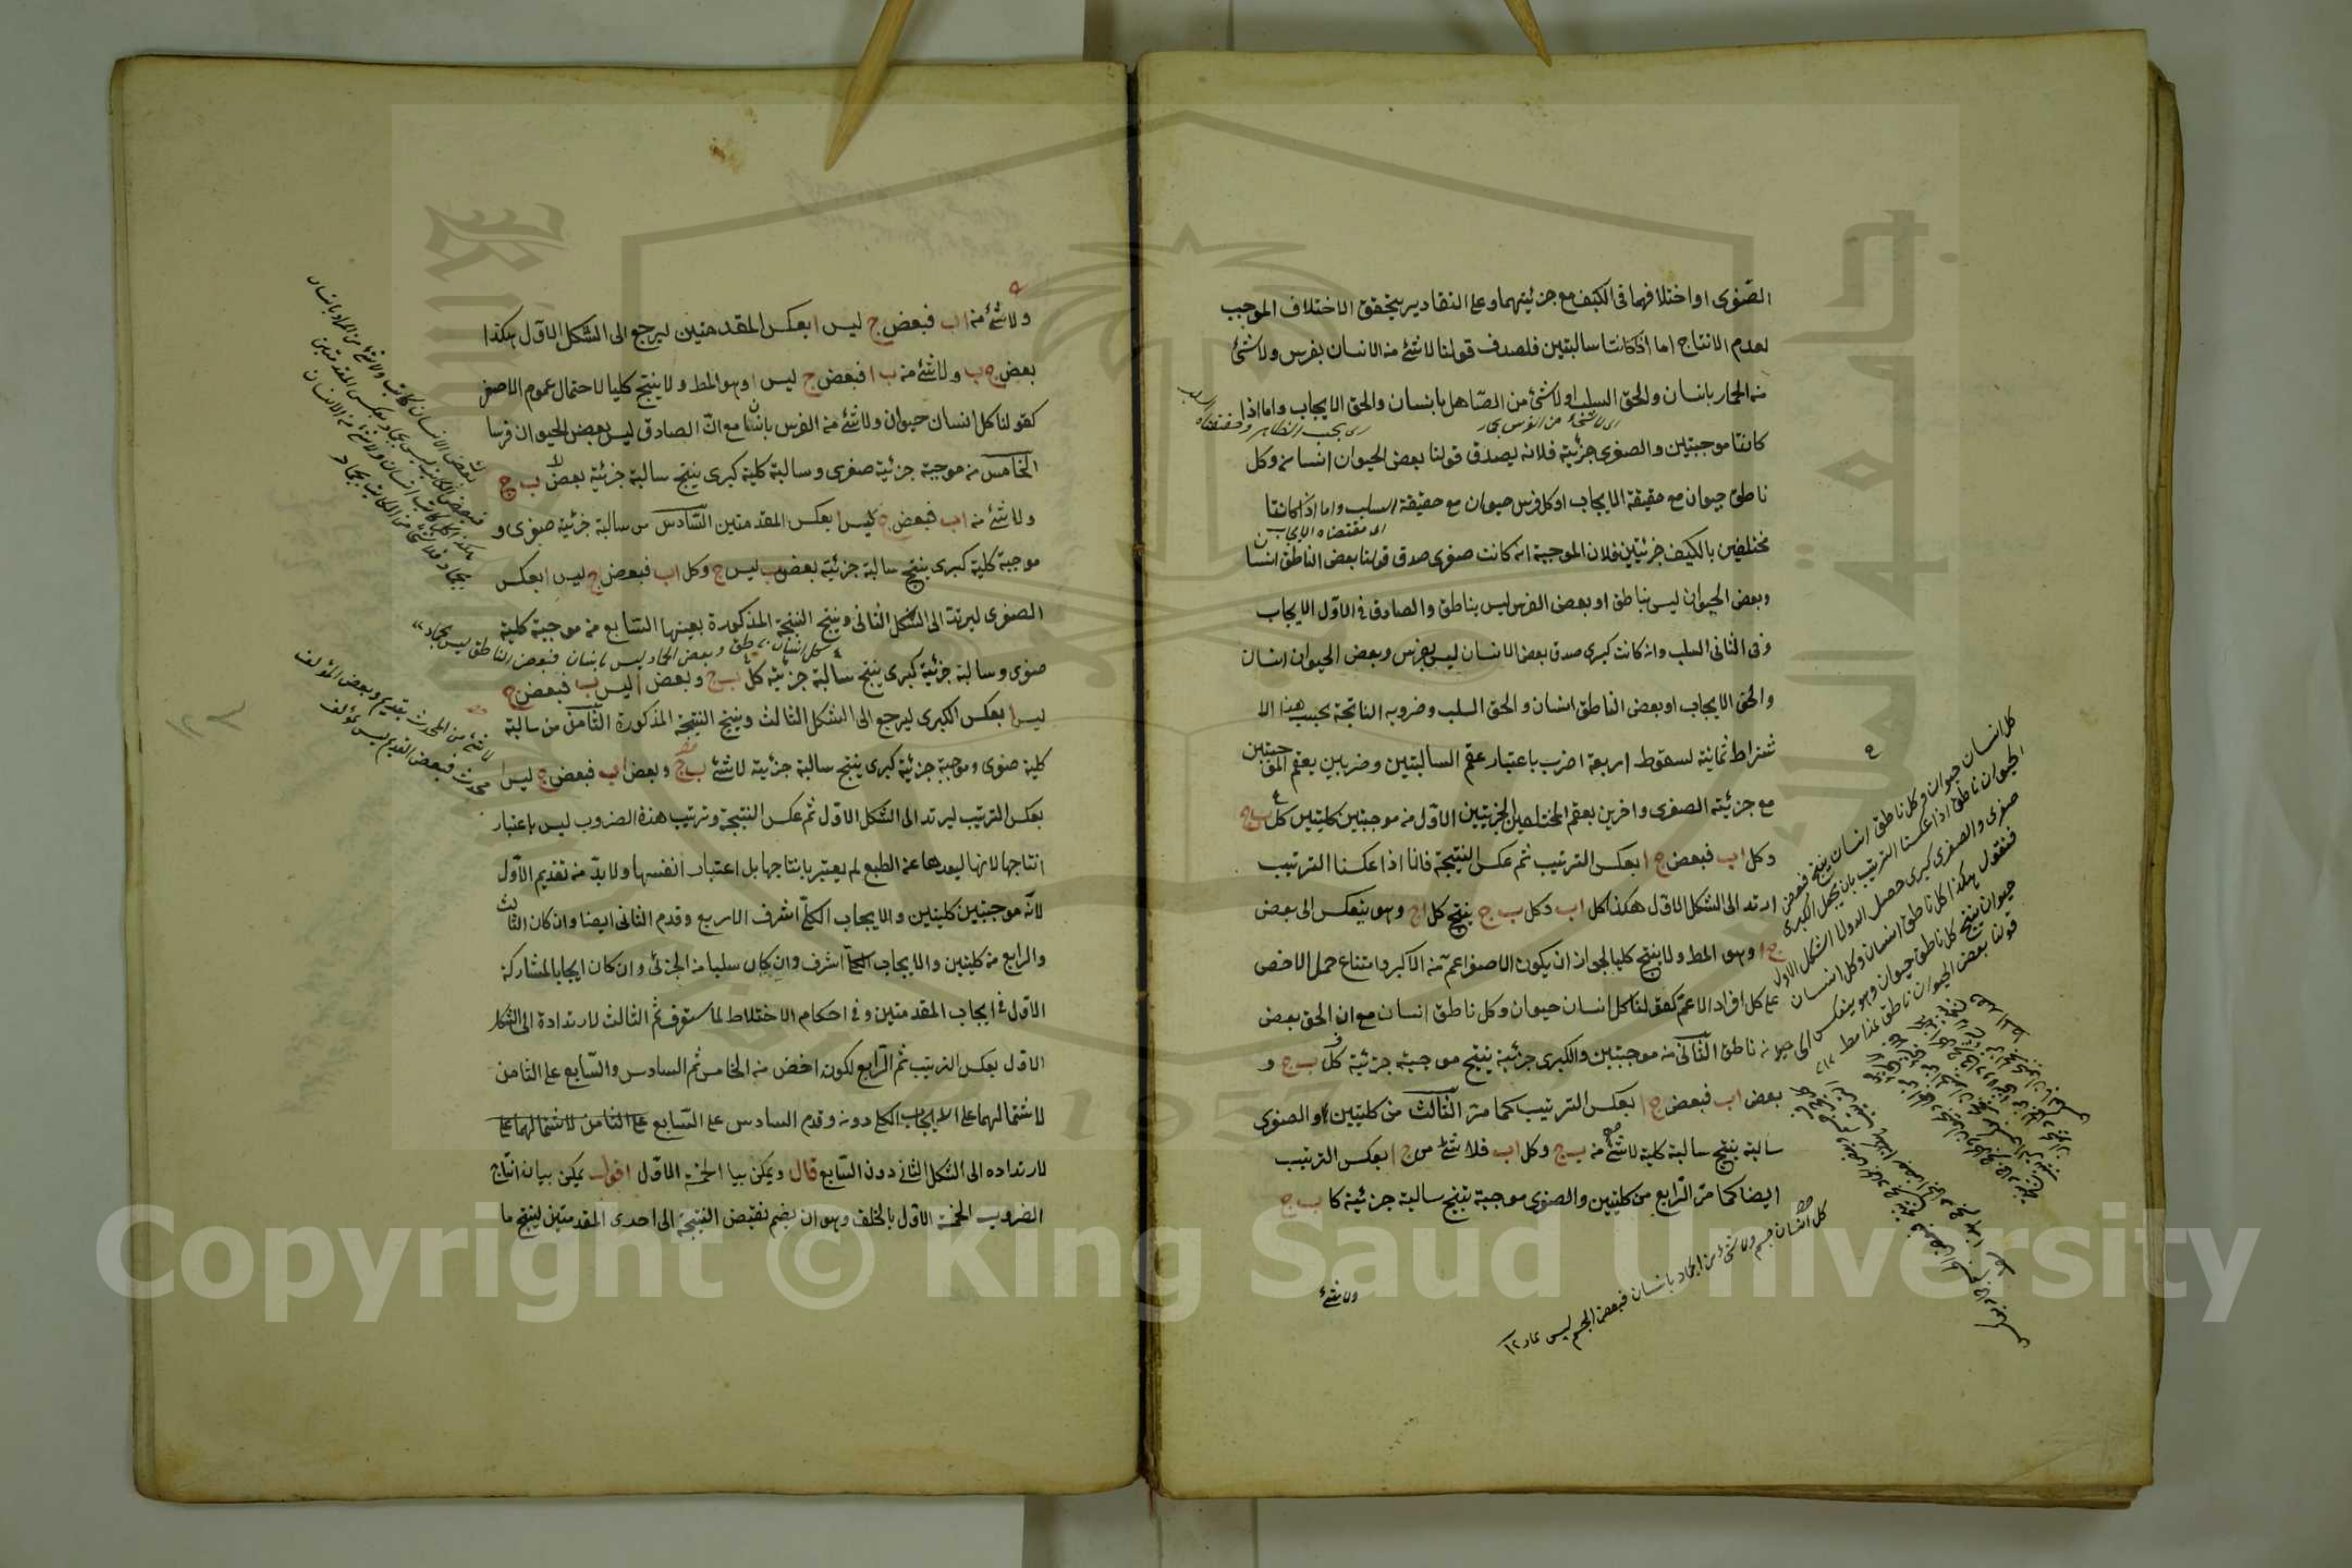 الصغرى او اختلافهما فى الكيف مع جزئيتهما وعلى التقادير يتحقق الاختلاف الموجب
لعدم الانتاج اما اذا كانتا سالبتين فلصدق قولنا لا شئ من الانسان بفرس ولا شئ
من الحمار بانسان والحق السلب او لا شئ من الصاهل بانسان والحق الايجاب واما اذا
كانتا موجبتين والصغرى جزئية فلانه يصدق قولنا بعض الحيوان انسان وكل
ناطق حيوان مع حقيقة الايجاب او كل فرس حيوان مع حقيقة السلب واما اذا كانتا
مختلفين بالكيف جزئيتين فلان الموجبة ان كانت صغرى صدق قولنا بعض الناطق انسان
وبعض الحيوان ليس بناطق او بعض الفرس ليس بناطق والصادق فى الاول الايجاب
وفى الثانى السلب وان كانت كبرى صدق بعض الانسان ليس بفرس وبعض الحيوان انسان
والحق الايجاب او بعض الناطق انسان والحق السلب وضروبه الناتجة بحسب هذا الا
شتراط ثمانية لسقوط اربعة اضرب باعتبار عقم السالبتين وضربين بعقم الموجبتين
مع جزئية الصغرى واخرين بعقم المختلفين الجزئيتين الاول من موجبتين كليتين كل ب ج
وكل ا ب فبعض ج ا بعكس الترتيب ثم عكس النتيجة فانا اذا عكسنا الترتيب
ارتد الى الشكل الاول هكذا كل ا ب وكل ب ج ينتج كل ا ج وهو ينعكس الى بعض
ج ا وهو المط ولا ينتج كليا لجواز ان يكون الاصغر اعم من الاكبر وامتناع حمل الاخص
على كل افراد الاعم كقولنا كل انسان حيوان وكل ناطق انسان مع ان الحق بعض
الحيوان ناطق الثانى من موجبتين والكبرى جزئية ينتج موجبة جزئية كل ب ج و
بعض ا ب فبعض ج ا بعكس الترتيب كما مر الثالث من كليتين والصغرى
سالبة ينتج سالبة كلية لا شئ من ب ج وكل ا ب فلا شئ من ج ا بعكس الترتيب
ايضا كما مر الرابع من كليتين والصغرى موجبة ينتج سالبة جزئية كل ب ج
ولا شئ
كل انسان حيوان وكل ناطق انسان ينتج فبعض
الحيوان ناطق اذا عكسنا الترتيب بان يجعل الكبرى
صغرى والصغرى كبرى حصل الشكل الاول
فنقول هكذا كل ناطق انسان وكل انسان
حيوان ينتج كل ناطق حيوان وهو ينعكس الى
قولنا بعض الحيوان ناطق
كل انسان جسم ولا شئ من الجماد بانسان فبعض الجسم ليس بجماد ١٢
ولا شئ من ا ب فبعض ج ليس ا بعكس المقدمتين ليرجع الى الشكل الاول هكذا
بعض ج ب ولا شئ من ب ا فبعض ج ليس ا وهو المط ولا ينتج كليا لاحتمال عموم الاصغر
كقولنا كل انسان حيوان ولا شئ من الفرس بانسان مع ان الصادق ليس بعض الحيوان فرسا
الخامس من موجبة جزئية صغرى وسالبة كلية كبرى ينتج سالبة جزئية بعض ب ج
ولا شئ من ا ب فبعض ج ليس ا بعكس المقدمتين السادس من سالبة جزئية صغرى و
موجبة كلية كبرى ينتج سالبة جزئية بعض ب ليس ج وكل ا ب فبعض ج ليس ا بعكس
الصغرى ليرتد الى الشكل الثانى وينتج النتيجة المذكورة بعينها السابع من موجبة كلية
كل انسان ناطق وبعض الجماد ليس بانسان فبعض الناطق ليس بجماد
صغرى وسالبة جزئية كبرى ينتج سالبة جزئية كل ب ج وبعض ا ليس ب فبعض ج
ليس ا بعكس الكبرى ليرجع الى الشكل الثالث وينتج النتيجة المذكورة الثامن من سالبة
كلية صغرى وموجبة جزئية كبرى ينتج سالبة جزئية لا شئ ب ج وبعض ا ب فبعض ج ليس ا
بعكس الترتيب ليرتد الى الشكل الاول ثم عكس النتيجة وترتيب هذه الضروب ليس باعتبار
انتاجها لانها لبعدها عن الطبع لم يعتبر بانتاجها بل اعتبار انفسها ولا بد من تقديم الاول
لانه موجبتين كليتين والايجاب الكلى اشرف الاربع وقدم الثانى ايضا وان كان الثالث
والرابع من كليتين والايجاب اشرف وان كان سلبيا من الجزئى وان كان ايجابا لمشاركة
الاول فى ايجاب المقدمتين وفى احكام الاختلاط لما ستعرف ثم الثالث لارتداده الى الشكل
الاول بعكس الترتيب ثم الرابع لكونه اخص من الخامس ثم السادس والسابع على الثامن
لاشتمالهما على الايجاب الكلى دونه وقدم السادس على السابع
لارتداده الى الشكل الثانى دون السابع قال ويمكن بيان الخمسة الاول اقول يمكن بيان انتاج
الضروب الخمسة الاول بالخلف وهو ان يضم نقيض النتيجة الى احدى المقدمتين لينتج ما
لا شئ من المحدث بقديم وبعض المؤلف
محدث فبعض القديم ليس بمؤلف
Copyright © King Saud University
1957